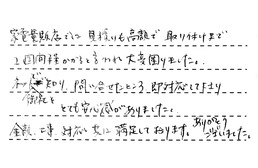 家電量販店では 見積りも高額で 取り付けまで
2週間様かかると言われ 大変困りました。
ネットで知り、問い合せたところ、即対応して下さり
御社と
とても安心感がありました。
金額、工事、対応 共に 満足しております。ありがとう
ございました。